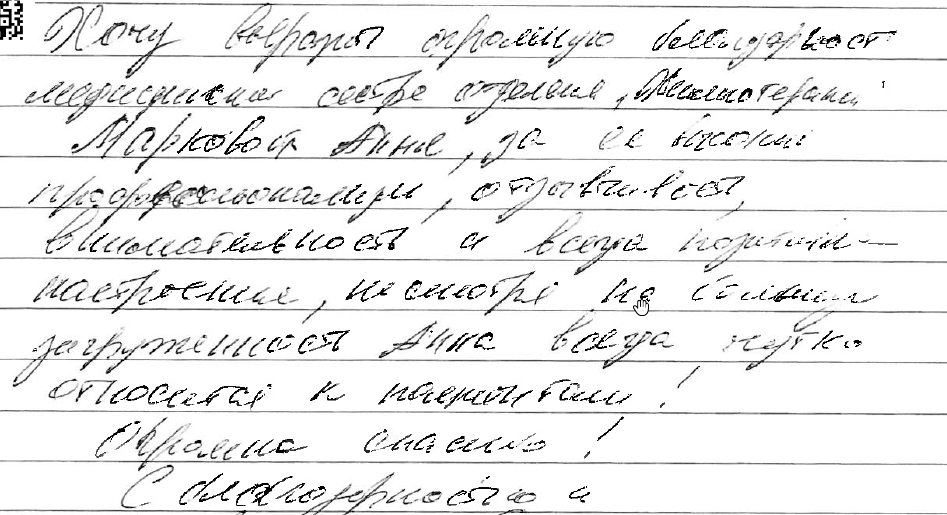 Хочу выразить огромную благодарность
медицинской сестре отделения
Марковой Анне, за ее высокий
профессионализм, отзывчивость,
внимательность и всегда позитивное
настроение, несмотря на большую
загруженность Анна всегда чутко
относится к пациентам!
Огромное спасибо!
С благодарностью и